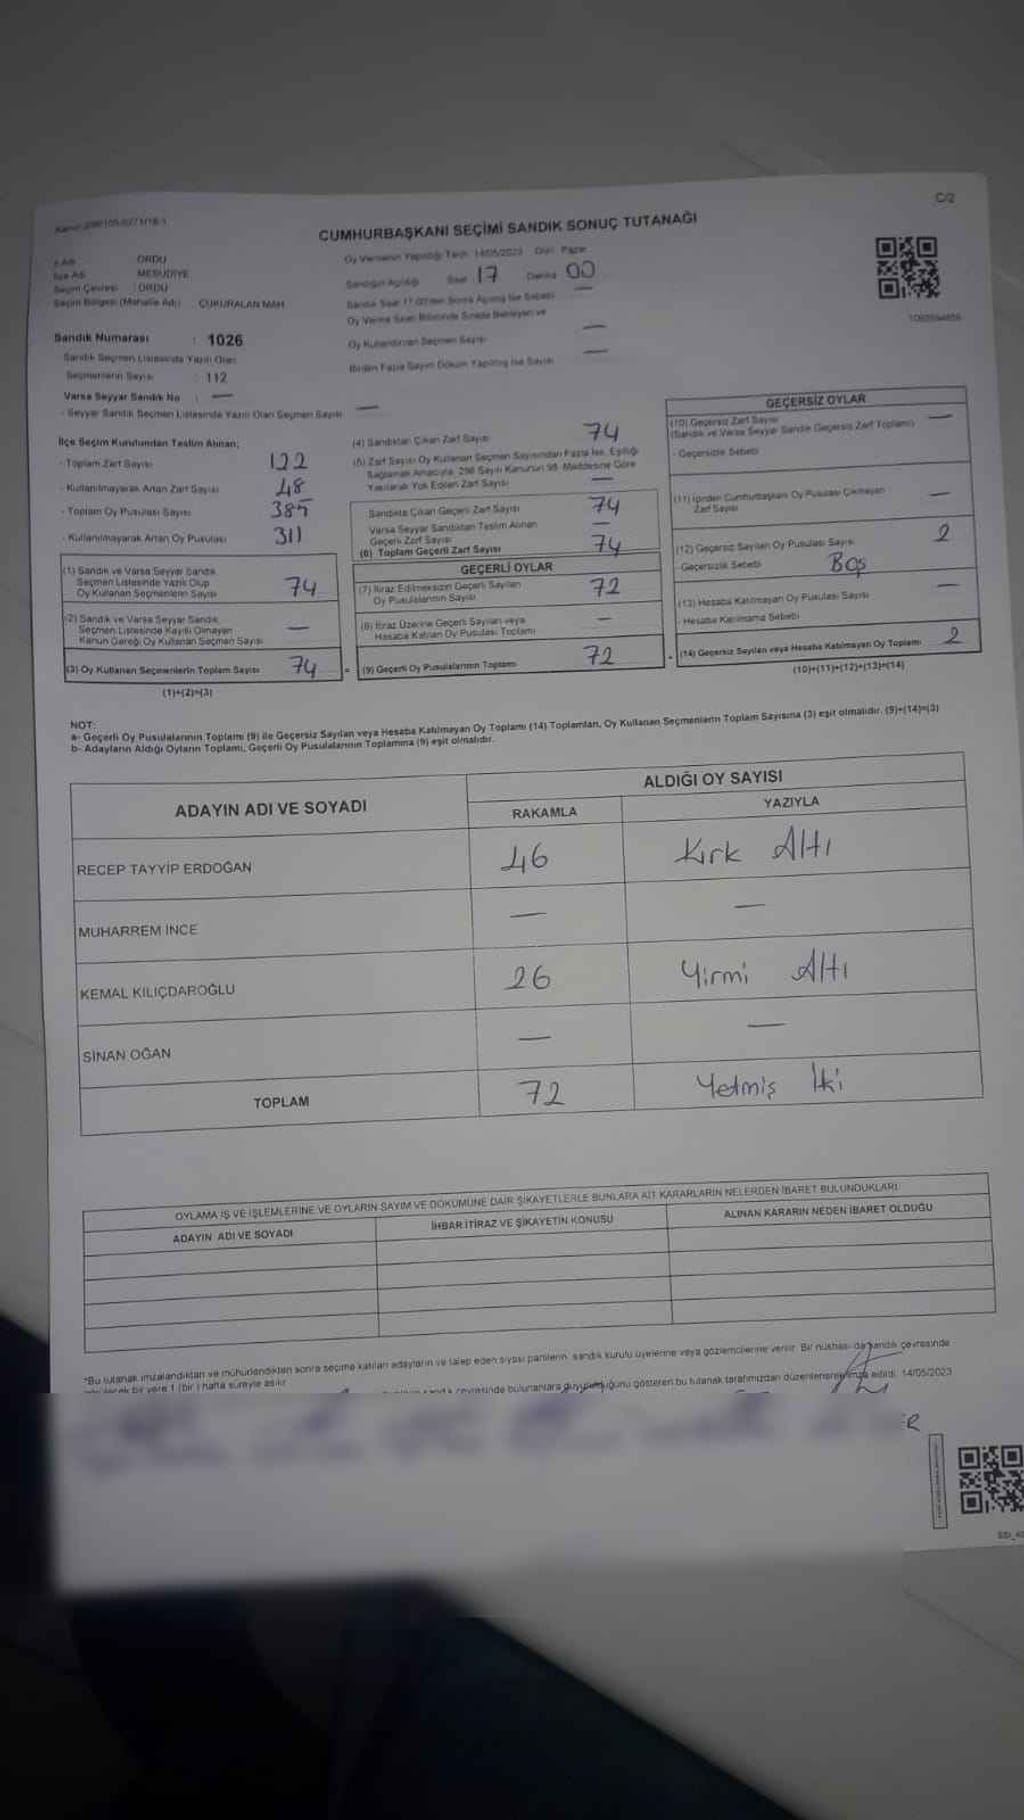 C/2
CUMHURBAŞKANI SEÇİMİ SANDIK SONUÇ TUTANAĞI
Oy Vermenin Yapıldığı Tarih 14/05/2023 Gün Pazar
ORDU
İlçe Adı MESUDİYE
Seçim Çevresi : ORDU
Seçim Bölgesi (Mahalle Adı) ÇUKURALAN MAH
Sandığın Açıldığı Saat 17 Dakika 00
Oy Kullandırılan Seçmen Sayısı —
Birden Fazla Sayım Döküm Yapılmış İse Sayısı —
Sandık Numarası : 1026
Sandık Seçmen Listesinde Yazılı Olan
Seçmenlerin Sayısı : 112
Varsa Seyyar Sandık No : —
- Seyyar Sandık Seçmen Listesinde Yazılı Olan Seçmen Sayısı —
İlçe Seçim Kurulundan Teslim Alınan;
- Toplam Zarf Sayısı 122
- Kullanılmayarak Artan Zarf Sayısı 48
- Toplam Oy Pusulası Sayısı 385
- Kullanılmayarak Artan Oy Pusulası 311
(1) Sandık ve Varsa Seyyar Sandık
Seçmen Listesinde Yazılı Olup
Oy Kullanan Seçmenlerin Sayısı 74
(2) Sandık ve Varsa Seyyar Sandık
Seçmen Listesinde Kayıtlı Olmayan
Kanun Gereği Oy Kullanan Seçmen Sayısı —
(3) Oy Kullanan Seçmenlerin Toplam Sayısı 74
(1)+(2)=(3)
(4) Sandıktan Çıkan Zarf Sayısı 74
(5) Zarf Sayısı Oy Kullanan Seçmen Sayısından Fazla İse, Eşitliği
Sağlamak Amacıyla, 298 Sayılı Kanunun 98. Maddesine Göre
Yakılarak Yok Edilen Zarf Sayısı —
Sandıkta Çıkan Geçerli Zarf Sayısı 74
Varsa Seyyar Sandıktan Teslim Alınan
Geçerli Zarf Sayısı —
(6) Toplam Geçerli Zarf Sayısı 74
GEÇERLİ OYLAR
(7) İtiraz Edilmeksizin Geçerli Sayılan
Oy Pusulalarının Sayısı 72
(8) İtiraz Üzerine Geçerli Sayılan veya
Hesaba Katılan Oy Pusulası Toplamı —
= (9) Geçerli Oy Pusulalarının Toplamı 72
GEÇERSİZ OYLAR
(10) Geçersiz Zarf Sayısı —
(Sandık ve Varsa Seyyar Sandık Geçersiz Zarf Toplamı)
- Geçersizlik Sebebi
(11) İçinden Cumhurbaşkanı Oy Pusulası Çıkmayan
Zarf Sayısı —
(12) Geçersiz Sayılan Oy Pusulası Sayısı 2
Geçersizlik Sebebi Boş
(13) Hesaba Katılmayan Oy Pusulası Sayısı —
- Hesaba Katılmama Sebebi
(14) Geçersiz Sayılan veya Hesaba Katılmayan Oy Toplamı 2
(10)+(11)+(12)+(13)=(14)
NOT:
a- Geçerli Oy Pusulalarının Toplamı (9) ile Geçersiz Sayılan veya Hesaba Katılmayan Oy Toplamı (14) Toplamları, Oy Kullanan Seçmenlerin Toplam Sayısına (3) eşit olmalıdır. (9)+(14)=(3)
b- Adayların Aldığı Oyların Toplamı, Geçerli Oy Pusulalarının Toplamına (9) eşit olmalıdır.
ADAYIN ADI VE SOYADI
ALDIĞI OY SAYISI
RAKAMLA YAZIYLA
RECEP TAYYİP ERDOĞAN 46 Kırk Altı
MUHARREM İNCE — —
KEMAL KILIÇDAROĞLU 26 Yirmi Altı
SİNAN OĞAN — —
TOPLAM 72 Yetmiş İki
OYLAMA İŞ VE İŞLEMLERİNE VE OYLARIN SAYIM VE DÖKÜMÜNE DAİR ŞİKAYETLERLE BUNLARA AİT KARARLARIN NELERDEN İBARET BULUNDUKLARI
ADAYIN ADI VE SOYADI İHBAR İTİRAZ VE ŞİKAYETİN KONUSU ALINAN KARARIN NEDEN İBARET OLDUĞU
*Bu tutanak imzalandıktan ve mühürlendikten sonra seçime katılan adayların ve talep eden siyasi partilerin sandık kurulu üyelerine veya gözlemcilerine verilir. Bir nüshası da sandık çevresinde
bir yere 1 (bir) hafta süreyle asılır
çevresinde bulunanlara duyurulduğunu gösteren bu tutanak tarafımızdan düzenlenerek imza edildi. 14/05/2023